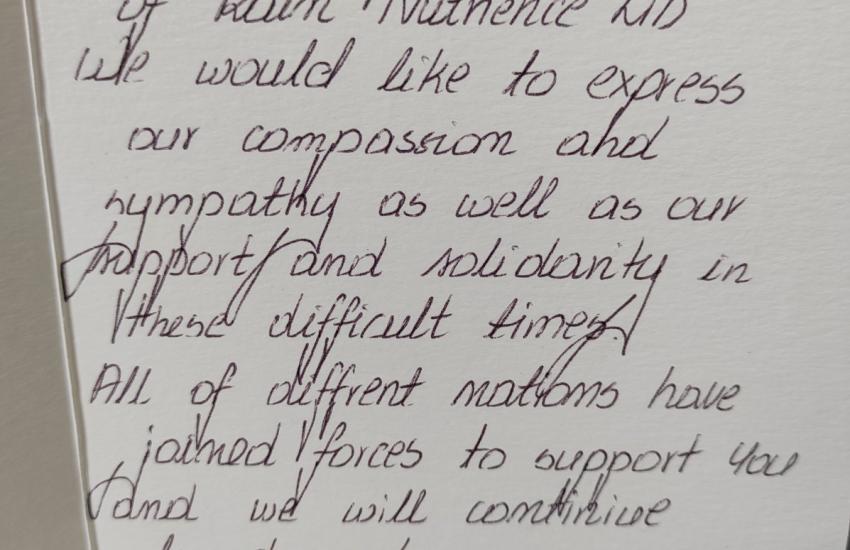 of
We would like to express
our compassion and
sympathy as well as our
support and solidarity in
these difficult times.
All of diffrent nations have
joined forces to support you
and we will continiue